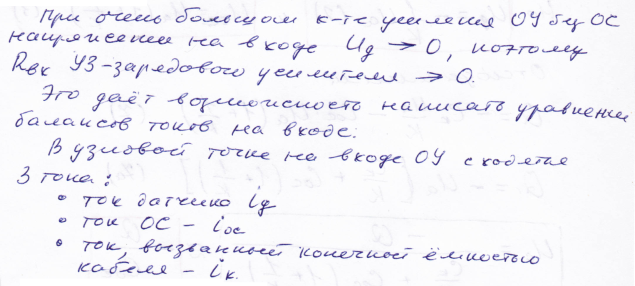 При очень большом к-те усиления ОУ без ОС
напряжение на входе Uд → 0, поэтому
Rвх УЗ-зарядового усилителя → 0.
Это даёт возможность написать уравнение
балансов токов на входе.
В узловой точке на входе ОУ сходятся
3 тока:
• ток датчика iд
• ток ОС – iос
• ток, вызванный конечной ёмкостью
кабеля – iк.